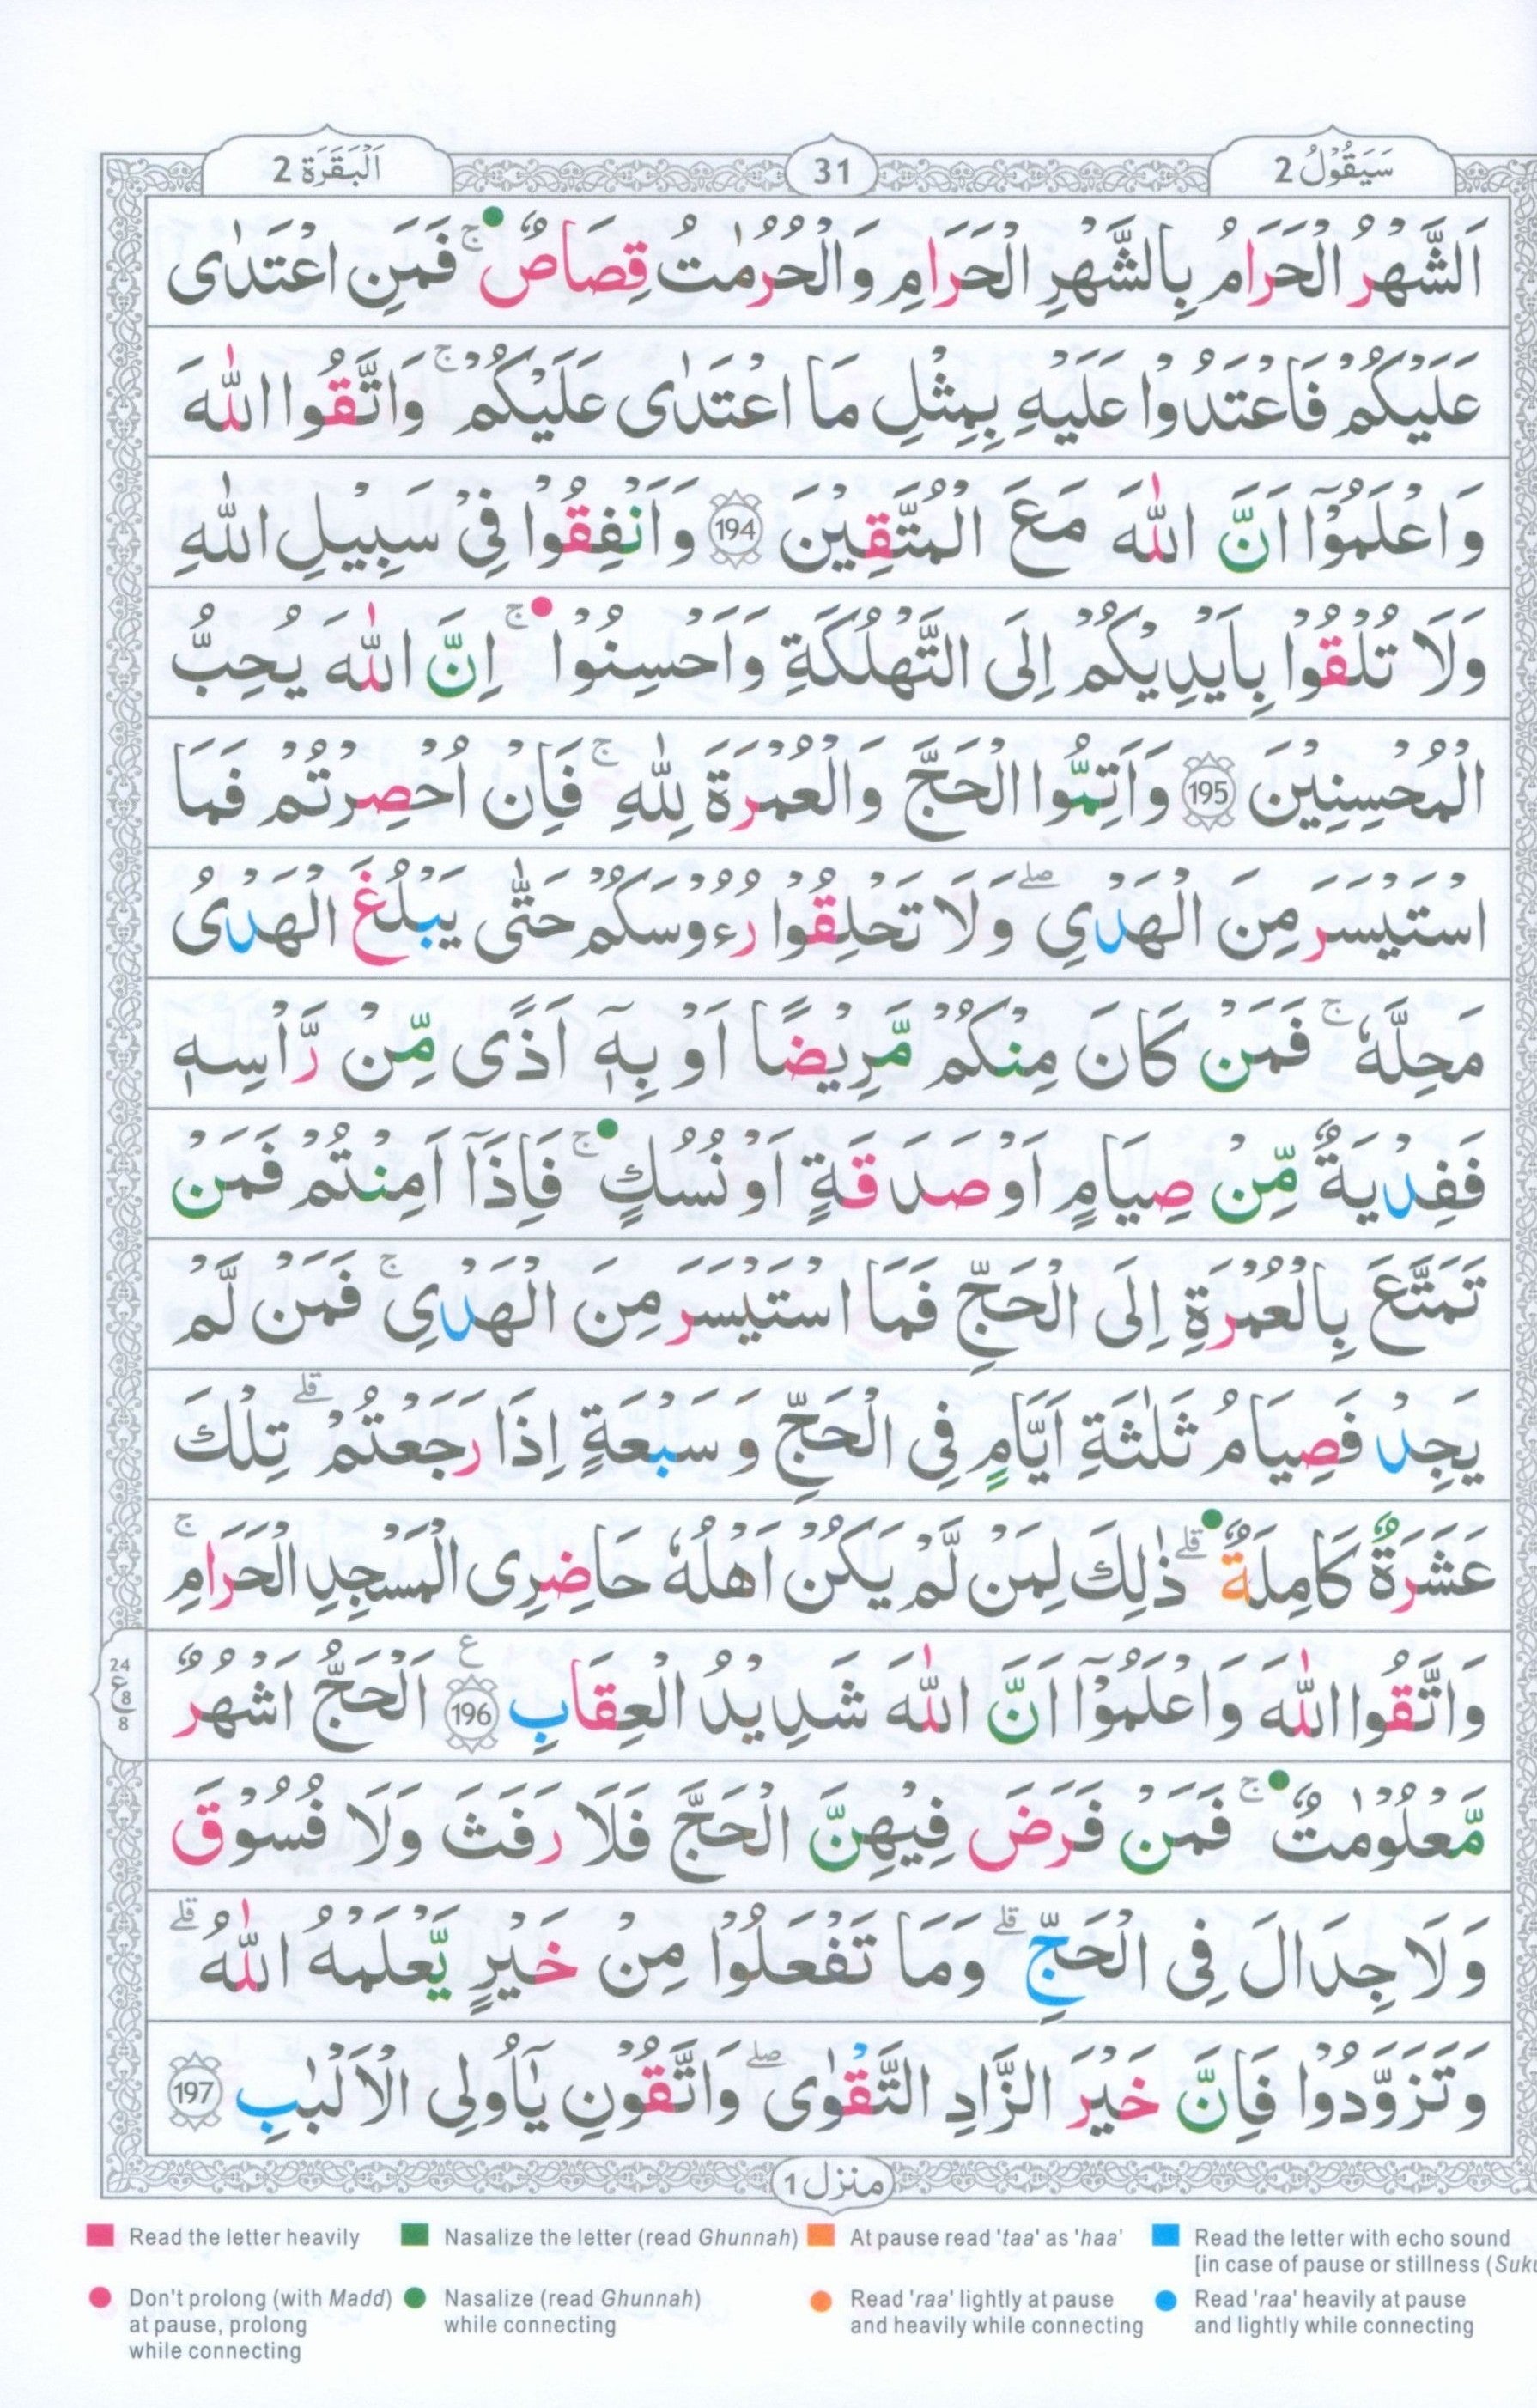 سَيَقُوْلُ 2
31
اَلْبَقَرَة 2
اَلشَّهْرُ الْحَرَامُ بِالشَّهْرِ الْحَرَامِ وَالْحُرُمٰتُ قِصَاصٌ ۚ فَمَنِ اعْتَدٰى
عَلَيْكُمْ فَاعْتَدُوْا عَلَيْهِ بِمِثْلِ مَا اعْتَدٰى عَلَيْكُمْ ۚ وَاتَّقُوا اللّٰهَ
وَاعْلَمُوْٓا اَنَّ اللّٰهَ مَعَ الْمُتَّقِيْنَ 194 وَاَنْفِقُوْا فِيْ سَبِيْلِ اللّٰهِ
وَلَا تُلْقُوْا بِاَيْدِيْكُمْ اِلَى التَّهْلُكَةِ وَاَحْسِنُوْا ۚ اِنَّ اللّٰهَ يُحِبُّ
الْمُحْسِنِيْنَ 195 وَاَتِمُّوا الْحَجَّ وَالْعُمْرَةَ لِلّٰهِ ۚ فَاِنْ اُحْصِرْتُمْ فَمَا
اسْتَيْسَرَ مِنَ الْهَدْيِ ۖ وَلَا تَحْلِقُوْا رُءُوْسَكُمْ حَتّٰى يَبْلُغَ الْهَدْيُ
مَحِلَّهٗ ۚ فَمَنْ كَانَ مِنْكُمْ مَّرِيْضًا اَوْ بِهٖٓ اَذًى مِّنْ رَّاْسِهٖ
فَفِدْيَةٌ مِّنْ صِيَامٍ اَوْ صَدَقَةٍ اَوْ نُسُكٍ ۚ فَاِذَآ اَمِنْتُمْ فَمَنْ
تَمَتَّعَ بِالْعُمْرَةِ اِلَى الْحَجِّ فَمَا اسْتَيْسَرَ مِنَ الْهَدْيِ ۚ فَمَنْ لَّمْ
يَجِدْ فَصِيَامُ ثَلٰثَةِ اَيَّامٍ فِي الْحَجِّ وَ سَبْعَةٍ اِذَا رَجَعْتُمْ ۗ تِلْكَ
عَشَرَةٌ كَامِلَةٌ ۗ ذٰلِكَ لِمَنْ لَّمْ يَكُنْ اَهْلُهٗ حَاضِرِى الْمَسْجِدِ الْحَرَامِ ۚ
وَاتَّقُوا اللّٰهَ وَاعْلَمُوْٓا اَنَّ اللّٰهَ شَدِيْدُ الْعِقَابِ ع 196 اَلْحَجُّ اَشْهُرٌ
24
ع 8
8
مَّعْلُوْمٰتٌ ۚ فَمَنْ فَرَضَ فِيْهِنَّ الْحَجَّ فَلَا رَفَثَ وَلَا فُسُوْقَ
وَلَا جِدَالَ فِى الْحَجِّ ۗ وَمَا تَفْعَلُوْا مِنْ خَيْرٍ يَّعْلَمْهُ اللّٰهُ ۗ
وَتَزَوَّدُوْا فَاِنَّ خَيْرَ الزَّادِ التَّقْوٰى ۖ وَاتَّقُوْنِ يٰٓاُولِى الْاَلْبٰبِ 197
منزل 1
Read the letter heavily
Nasalize the letter (read Ghunnah)
At pause read 'taa' as 'haa'
Read the letter with echo sound
[in case of pause or stillness
Don't prolong (with Madd)
at pause, prolong
while connecting
Nasalize (read Ghunnah)
while connecting
Read 'raa' lightly at pause
and heavily while connecting
Read 'raa' heavily at pause
and lightly while connecting